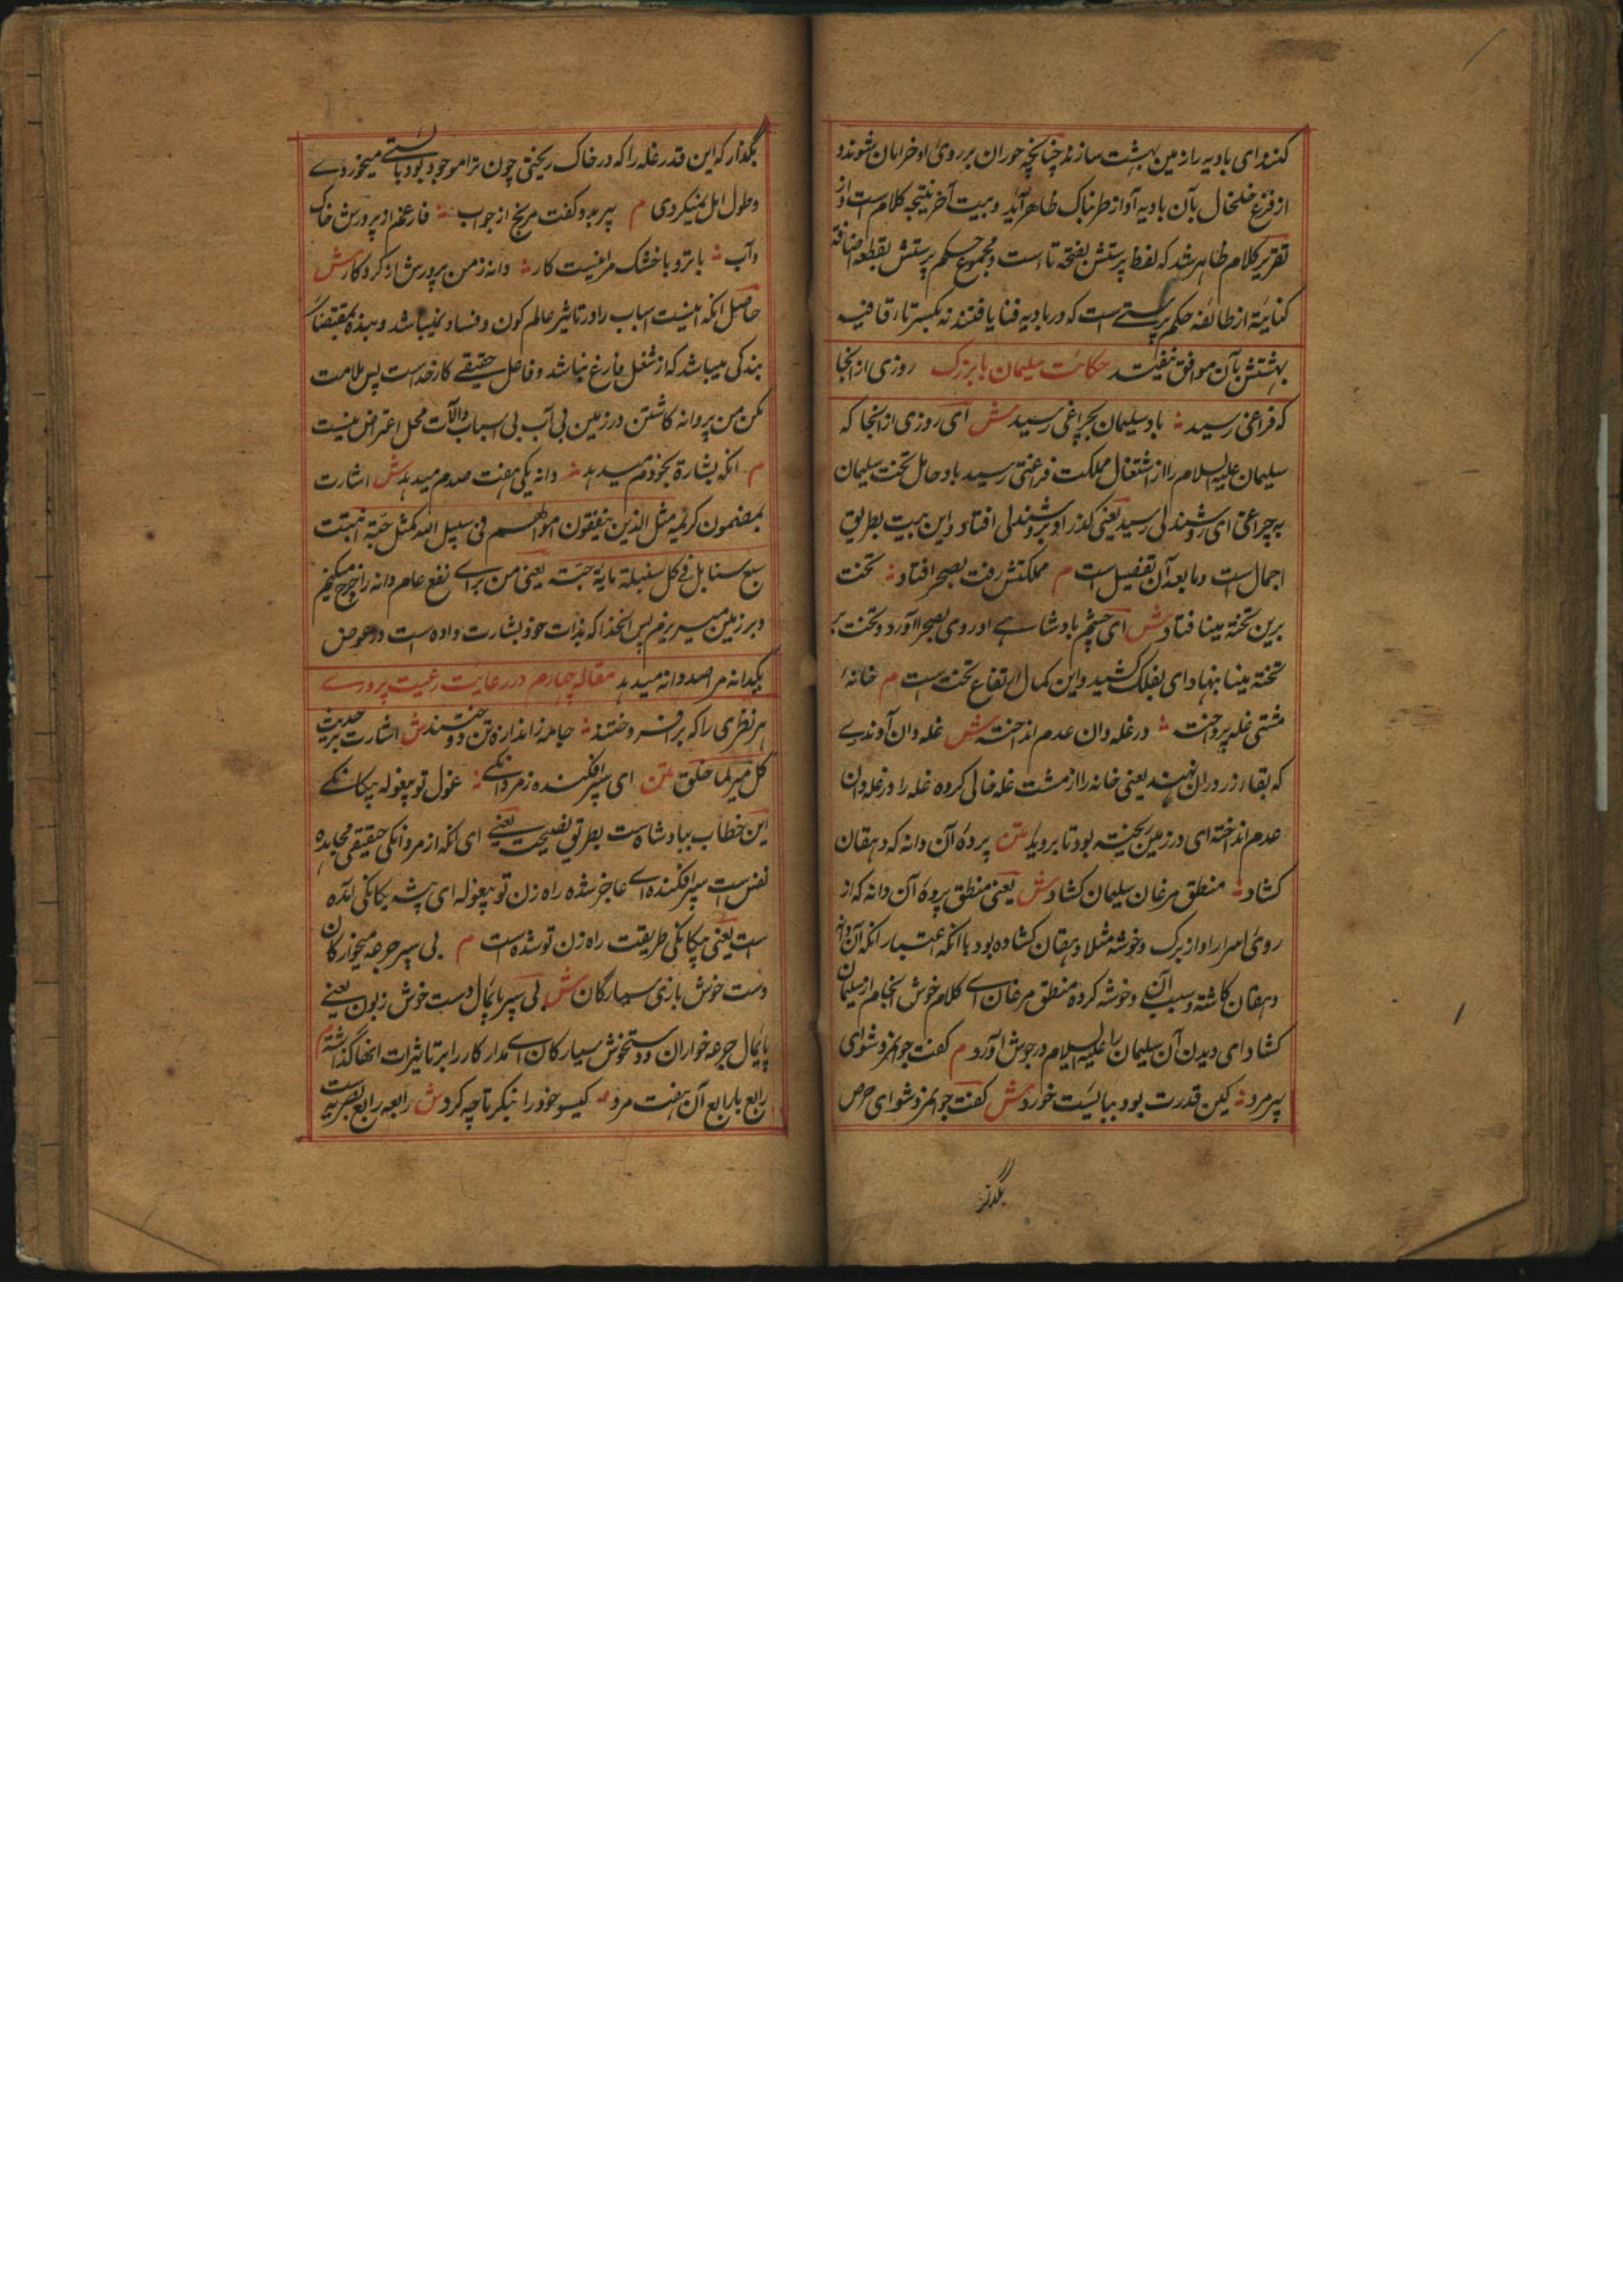 کنند ای بادیه را زمین بهشت سازند چنانچه حوران بر روی او خرامان شوند و
از فزع خلخال بآن بادیه آواز طربناک ظاهر آید و بیت آخر نتیجه کلام است و از
تقریر کلام ظاهر شد که لفظ پرستش بفتحه تا است و مجموع حکم پرستش بقطع اضافة
کنایة از طائفه حکم پرستی است که در بادیه فنا یافتند نه بکسر تا زیرا قافیه
بهشتش بآن موافق نیفتد حکایت سلیمان با بزرگ روزی از انجا
که فراغی رسید باد سلیمان بچراغی رسید ش ای روزی از انجا که
سلیمان علیه السلام را از اشتغال مملکت فراغتی رسید باد حامل تخت سلیمان
به چراغی ای روشندلی رسید یعنی گذر او بروشندلی افتاد و این بیت بطریق
اجمال است و ما بعد آن تفصیل است م مملکتش رفت بصحرا فتاد تخت
برین تخته مینا فتاد ش ای حشم بادشاهی او روی بصحرا آورد و تخت بر
تخته مینا بنهاد ای بفلک کشید و این کمال ارتفاع تخت است م خانهٔ
مشتی غله پرداخت در غله دان عدم انداخته ش غله دان آوندی
که بقاء زر دران نهند یعنی خانه را از مشت غله خالی کرده غله را در غله دان
عدم انداخته ای در زمین ریخته بود تا بروید متن پردهٔ آن دانه که دهقان
کشاد منطق مرغان سلیمان کشاد ش یعنی منطق پرده آن دانه که از
روی اسرار او از برگ و خوشه مثلا دهقان کشاده بود با آنکه اعتبار آنکه آن دانه
دهقان کاشته و سبب آن و خوشه کرده منطق مرغان ای کلام خوش انجام از سلیمان
کشاد ای دیدن آن سلیمان را علیه السلام در جوش آورد م گفت جوانمرد شو ای
پیر مرد کین قدرت بود ببایست خورد ش گفت جوانمرد شو ای حرص
بگذار
بگذار که این قدر غله را که در خاک ریختی چون ترا موجود بود بایستی میخوردی
و طول امل نمیکردی م پیر بدو گفت مرنج از جواب فارغم از پرورش خاک
و آب با تر و با خشک مرا نیست کار دانه ز من پرورش از کردگار ش
حاصل آنکه اینست اسباب را در تاثیر عالم کون و فساد نمیباشد و بنده بمقتضای
بندگی میباشد که از شغل فارغ نباشد و فاعل حقیقی کار خداست پس ملامت
مکن من پر دانه کاشتن در زمین بی آب بی اسباب و آلات محل اعتراض نیست
م آنکه بشارة بخودم میدهد دانه یکی هفت صدم میدهد ش اشارت
بمضمون کریمه مثل الذین ینفقون اموالهم فی سبیل الله کمثل حبة انبتت
سبع سنابل فی کل سنبلة مایة حبة یعنی من برای نفع عام دانه را خرج میکنم
و بر زمین میریزم پس آن خدا که بذات خود بشارت داده است در عوض
یکدانه مرا صد دانه میدهد مقاله چهارم در رعایت رعیت پروری
هر نظری را که بر افروختند جامه ز اندازه تن دوختند ش اشارت بحدیث
کل میسر لما خلق متن ای سپر افکنده ز مردانگی غول تو بیغوله بیگانگی
این خطاب ببادشاه است بطریق نصیحت یعنی ای آنکه از مردانگی حقیقی مجاهده
نفس است سپر افکنده ای عاجز شده راه زن تو بیغوله ای بیشه بیگانگی شده
است یعنی بیگانگی طریقت راه زن تو شده است م بی سپر جرعه میخوارگان
دست خوش بازی سیارگان ش بی سپر پایمال دست خوش زبون یعنی
پایمال جرعه خواران و دستخوش سیارگان ای مدار کار را بر تاثیرات انها گذاشته م
رابع با رابع آن هفت مرد گیسو خود را بنگر تا چه کرد ش رابعه رابع بصریه است